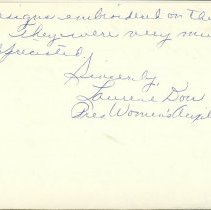 esigns embroidered on the
They were very mu
ppreciated.
Sincerely,
Laurene Dow
Pres Women's Auxil